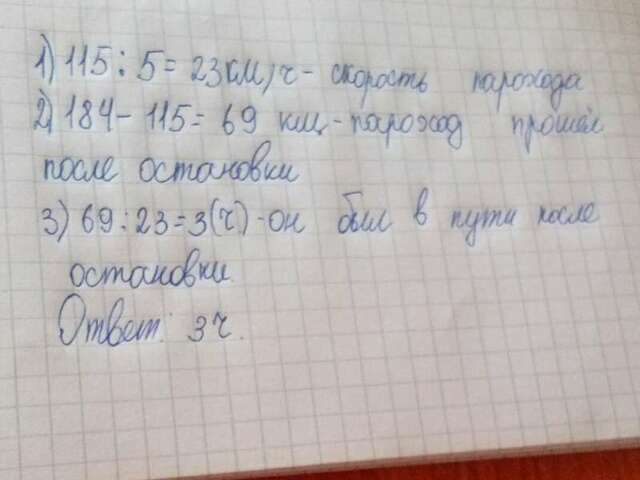 1) 115 : 5 = 23 км/ч - скорость парохода
2) 184 - 115 = 69 км - пароход прошёл
после остановки
3) 69 : 23 = 3 (ч) - он был в пути после
остановки.
Ответ: 3 ч.